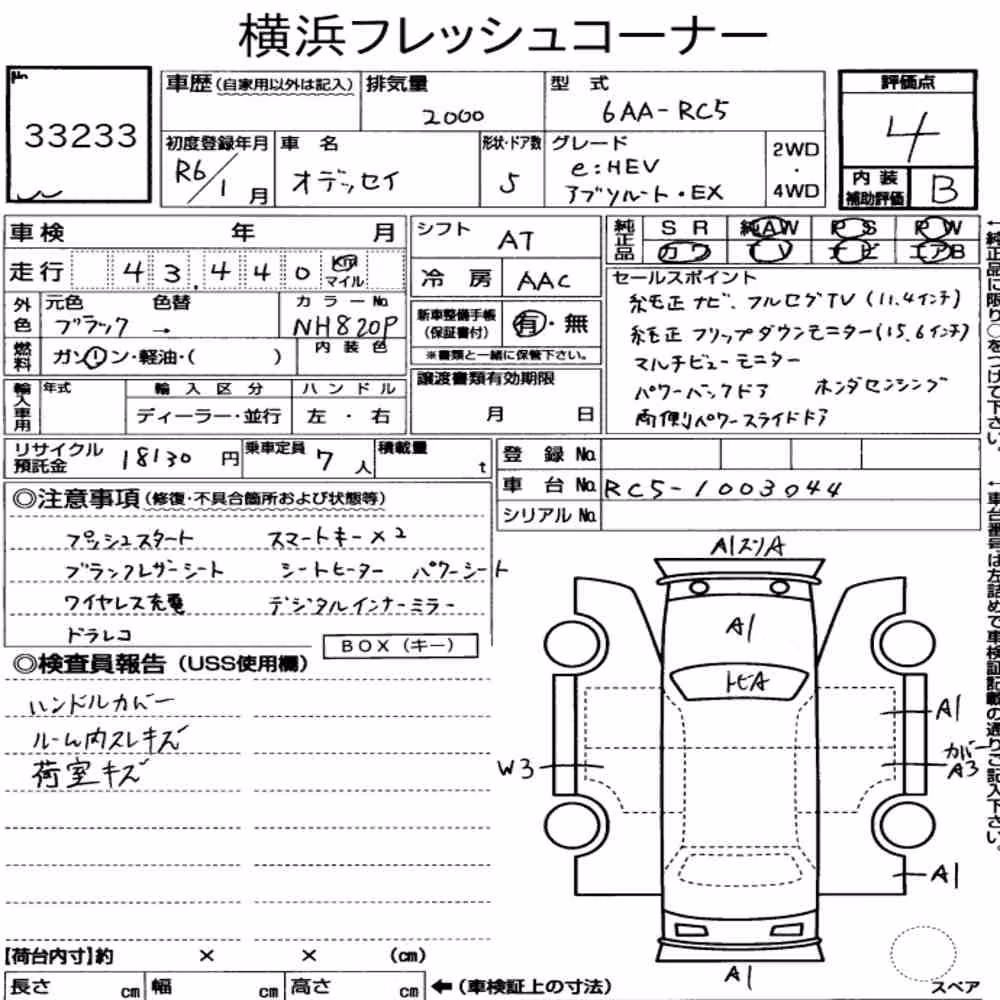 横浜フレッシュコーナー
No.
33233
車歴(自家用以外は記入) 排気量 2000 型式 6AA-RC5
評価点 4
内装補助評価 B
初度登録年月 R6/1月 車名 オデッセイ 形状・ドア数 5 グレード e:HEV アブソルート・EX 2WD・4WD
車検 年 月
走行 43,440 km マイル
外色 元色 ブラック 色替 → カラーNo. NH820P
燃料 ガソリン・軽油・( ) 内装色
輸入車用 年式 輸入区分 ディーラー・並行 ハンドル 左・右
シフト AT
冷房 AAC
新車整備手帳(保証書付) 有・無
※書類と一緒に保管下さい。
譲渡書類有効期限
月 日
純正品 SR 純AW PS PW
カワ TV ナビ エアB
セールスポイント
純正ナビ、フルセグTV(11.4インチ)
純正フリップダウンモニター(15.6インチ)
マルチビューモニター
パワーバックドア ホンダセンシング
両側パワースライドドア
←純正品に限り○をつけて下さい。
←車台番号は左詰めで車検証記載の通りご記入下さい。
リサイクル預託金 18130円 乗車定員 7人 積載量 t
登録No.
車台No. RC5-1003044
シリアルNo.
◎注意事項(修復・不具合箇所および状態等)
プッシュスタート スマートキー×2
ブラックレザーシート シートヒーター パワーシート
ワイヤレス充電 デジタルインナーミラー
ドラレコ
BOX(キー)
◎検査員報告(USS使用欄)
ハンドルカバー
ルーム内スレキズ
荷室キズ
A1スリA
A1
トビA
A1
W3
カバーA3
A1
A1
【荷台内寸】約 × × (cm)
長さ cm 幅 cm 高さ cm ←(車検証上の寸法)
スペア